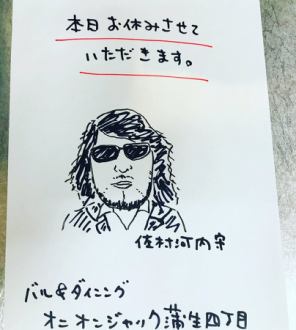 本日お休みさせて
いただきます。
佐村河内守
バル&ダイニング
オニオンジャック蒲生四丁目